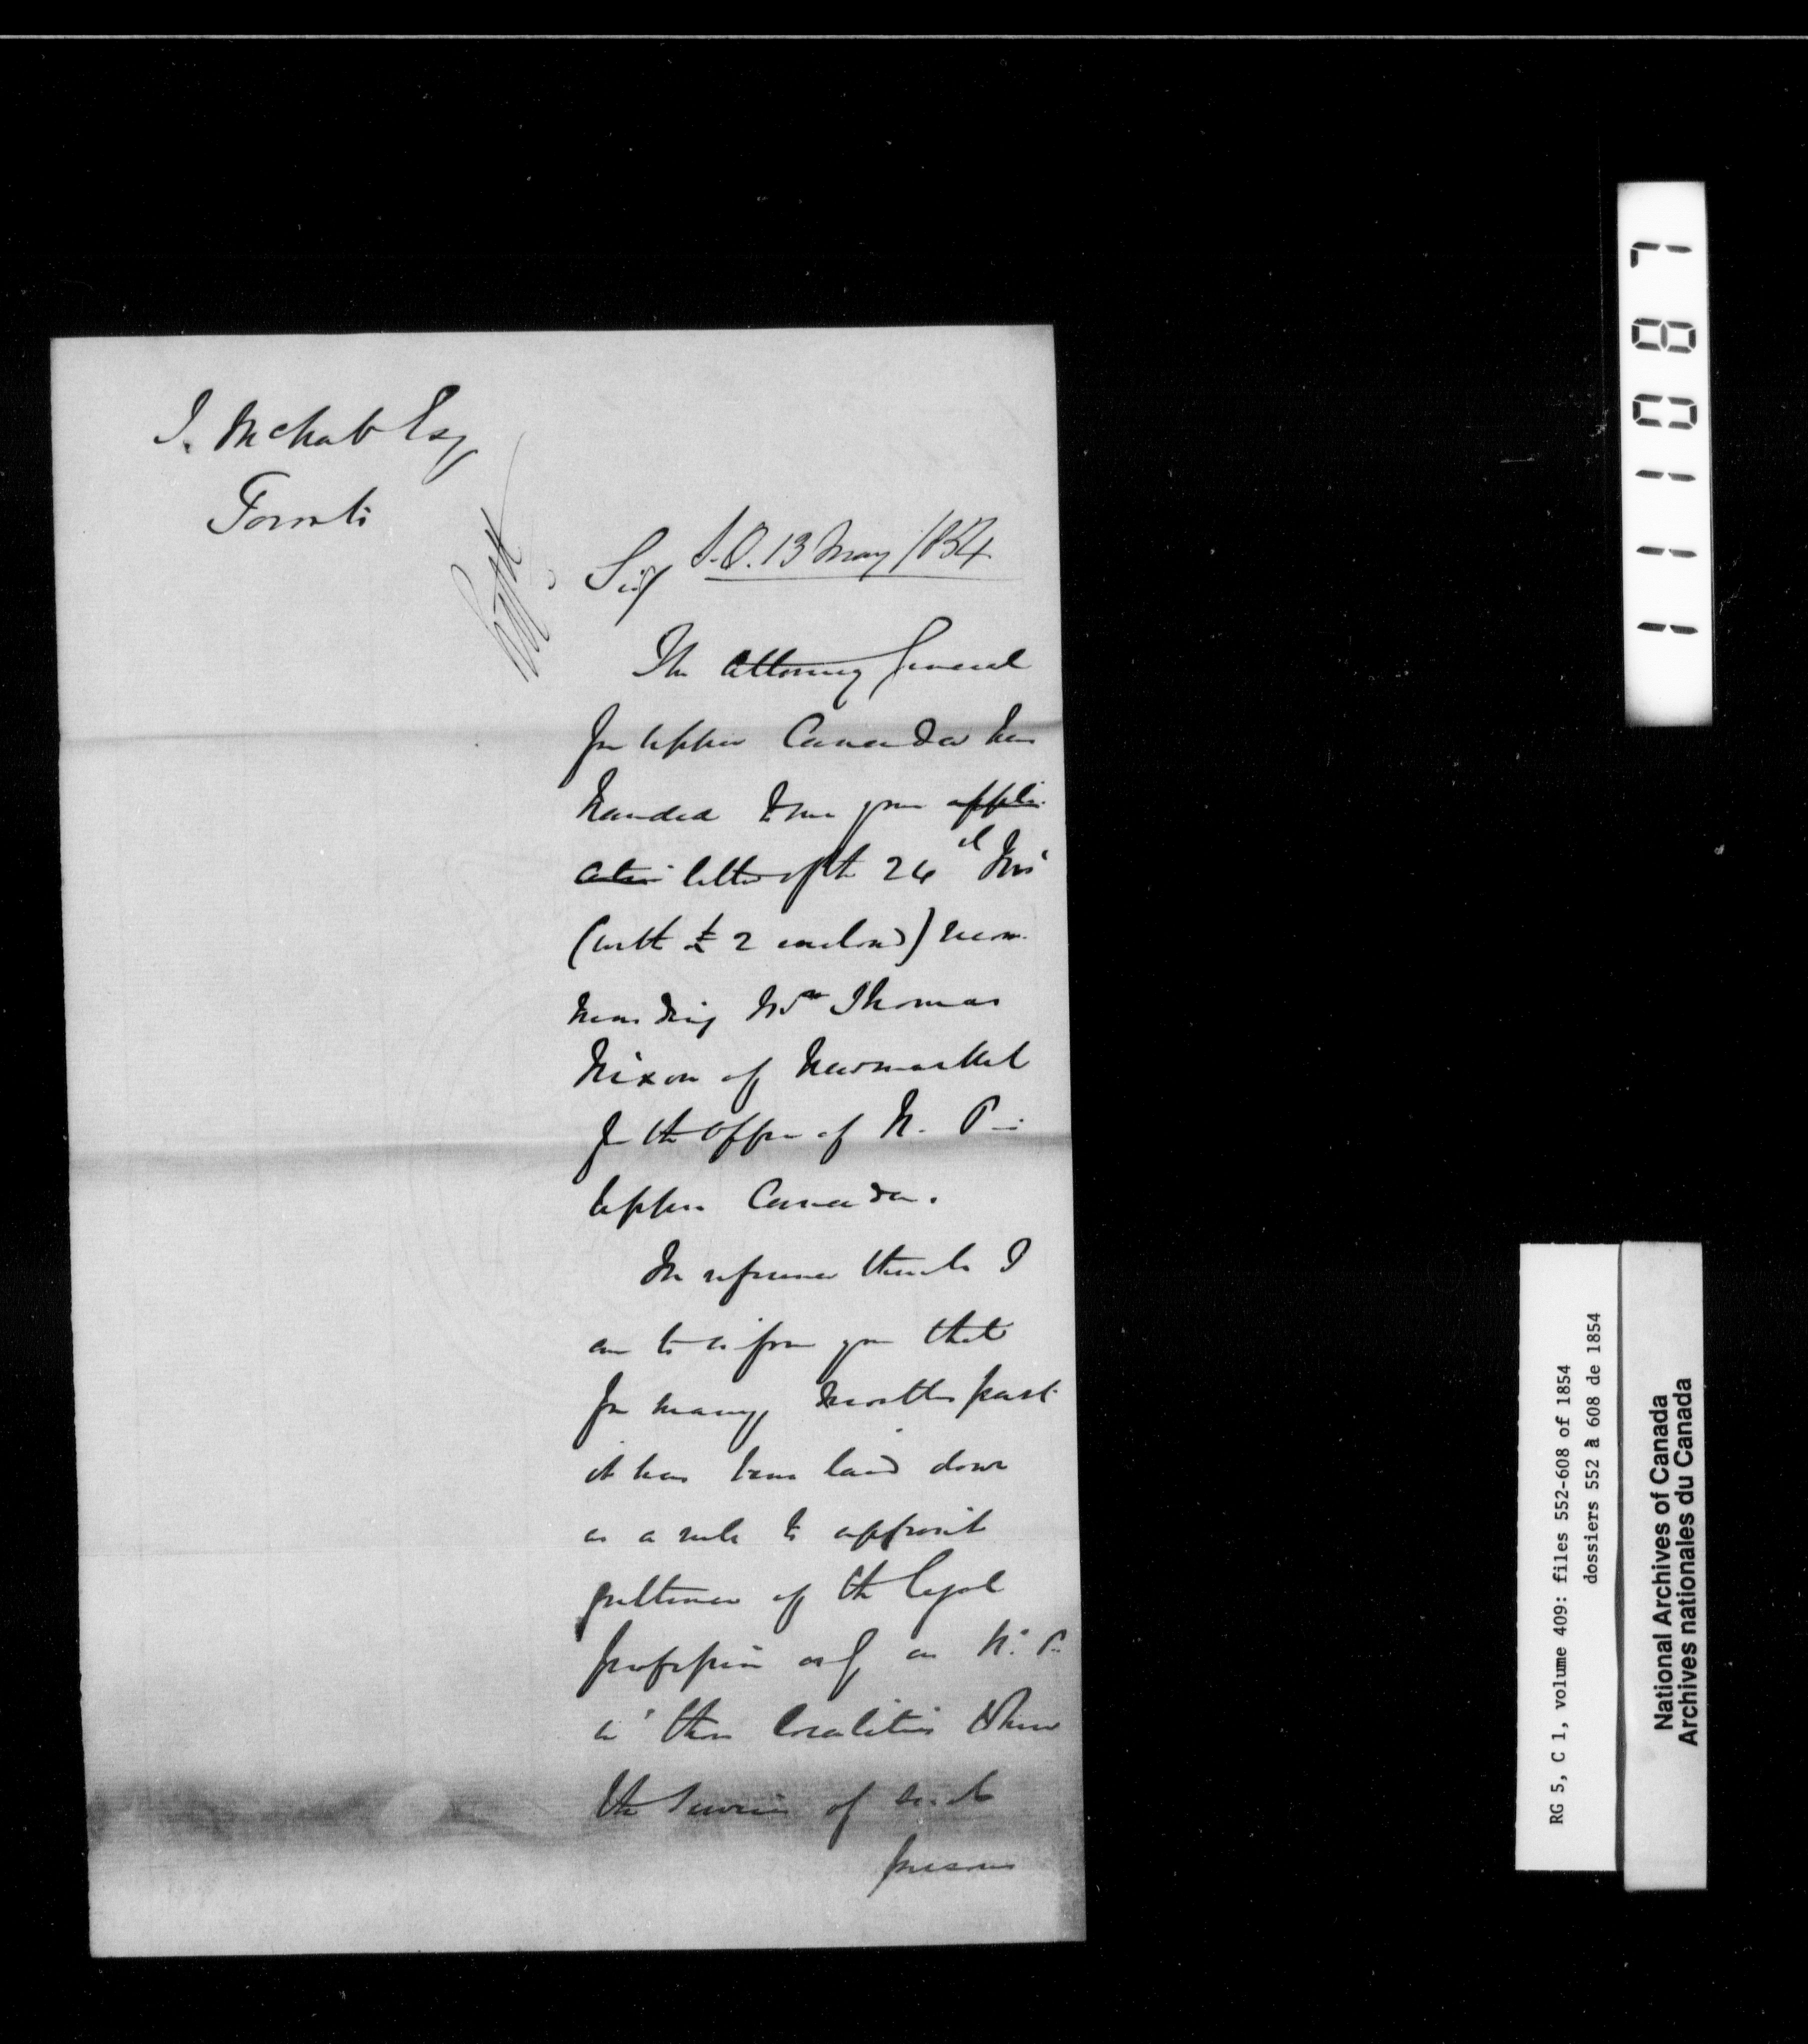 J. McNab Esq
Toronto
S.O. 13 May 1854
Sir
The Attorney General
for Upper Canada has
handed to me your appli-
cation letter of the
(with £ 2 enclosed) recom-
mending Mr Thomas
Nixon of Newmarket
for the Office of N. P. in
Upper Canada.
In reference thereto I
am to inform you that
for many months past
it has been laid down
as a rule to appoint
gentlemen of the legal
profession only as N. P.
in those localities where
the services of such
persons
1111087
RG 5, C 1, volume 409: files 552-608 of 1854
dossiers 552 à 608 de 1854
National Archives of Canada
Archives nationales du Canada